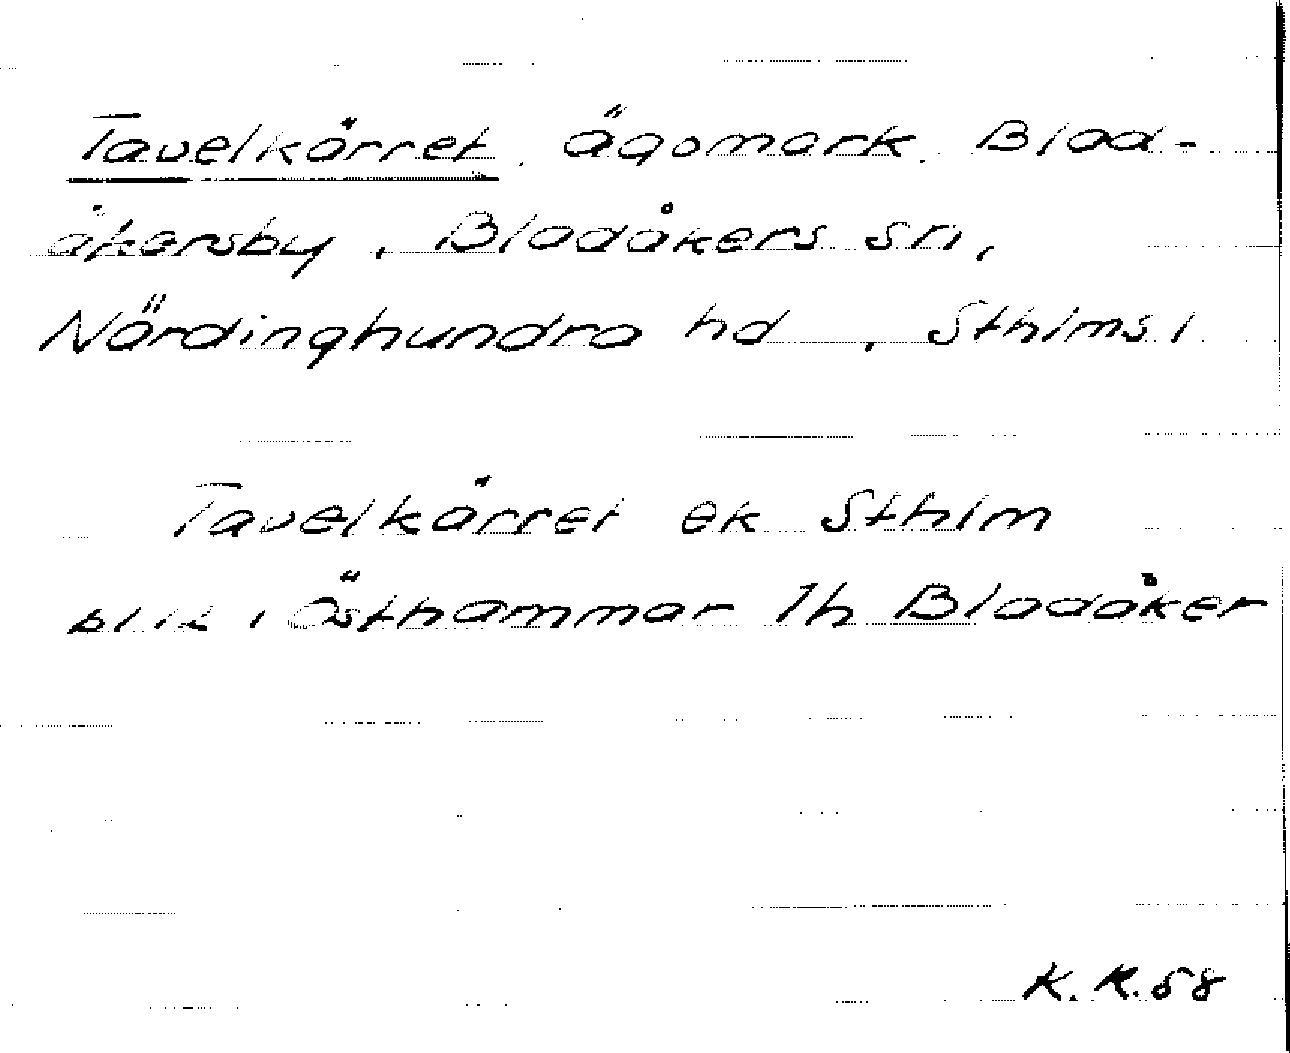 Tavelkärret, ägomark, Blad-
åkersby, Bladåkers sn,
Närdinghundra hd, Sthlms l
Tavelkärret ek Sthlm
blik i Östhammar 1h Bladåker
K. R. 58